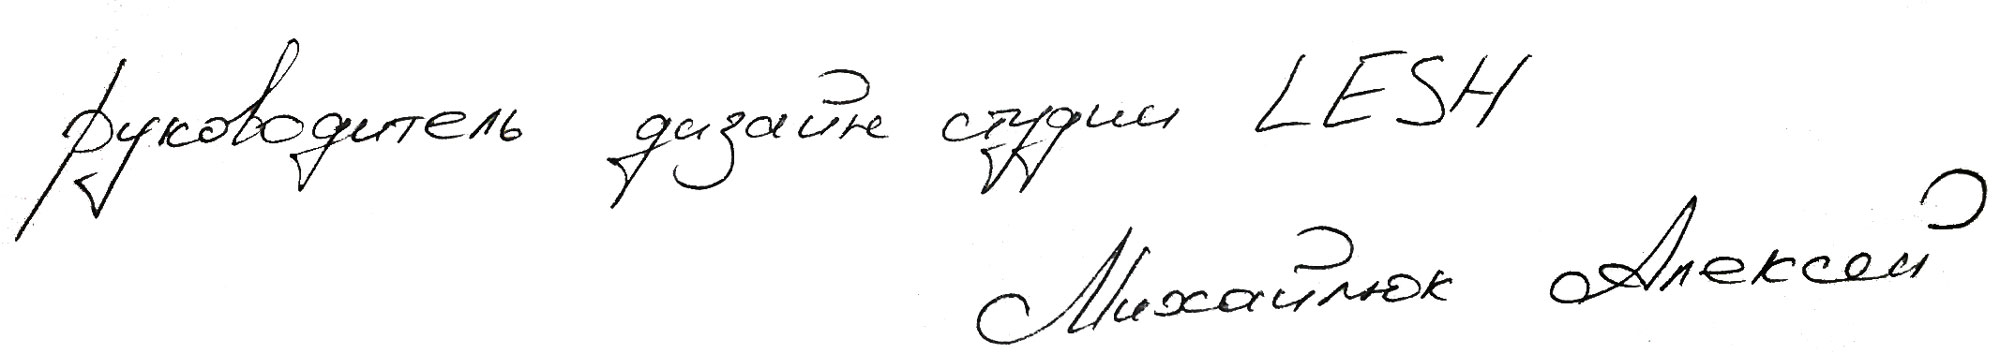 руководитель дизайн студии LESH
Михайлюк Алексей